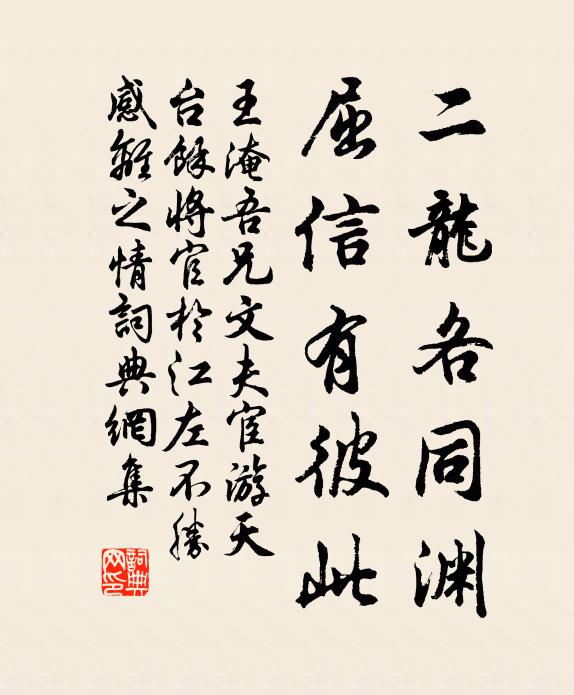 二龍各同渊
屈信有彼此
王淹吾兄文夫宦游天
台餘將官於江左不勝
感離之情詞典網集
詞典网印